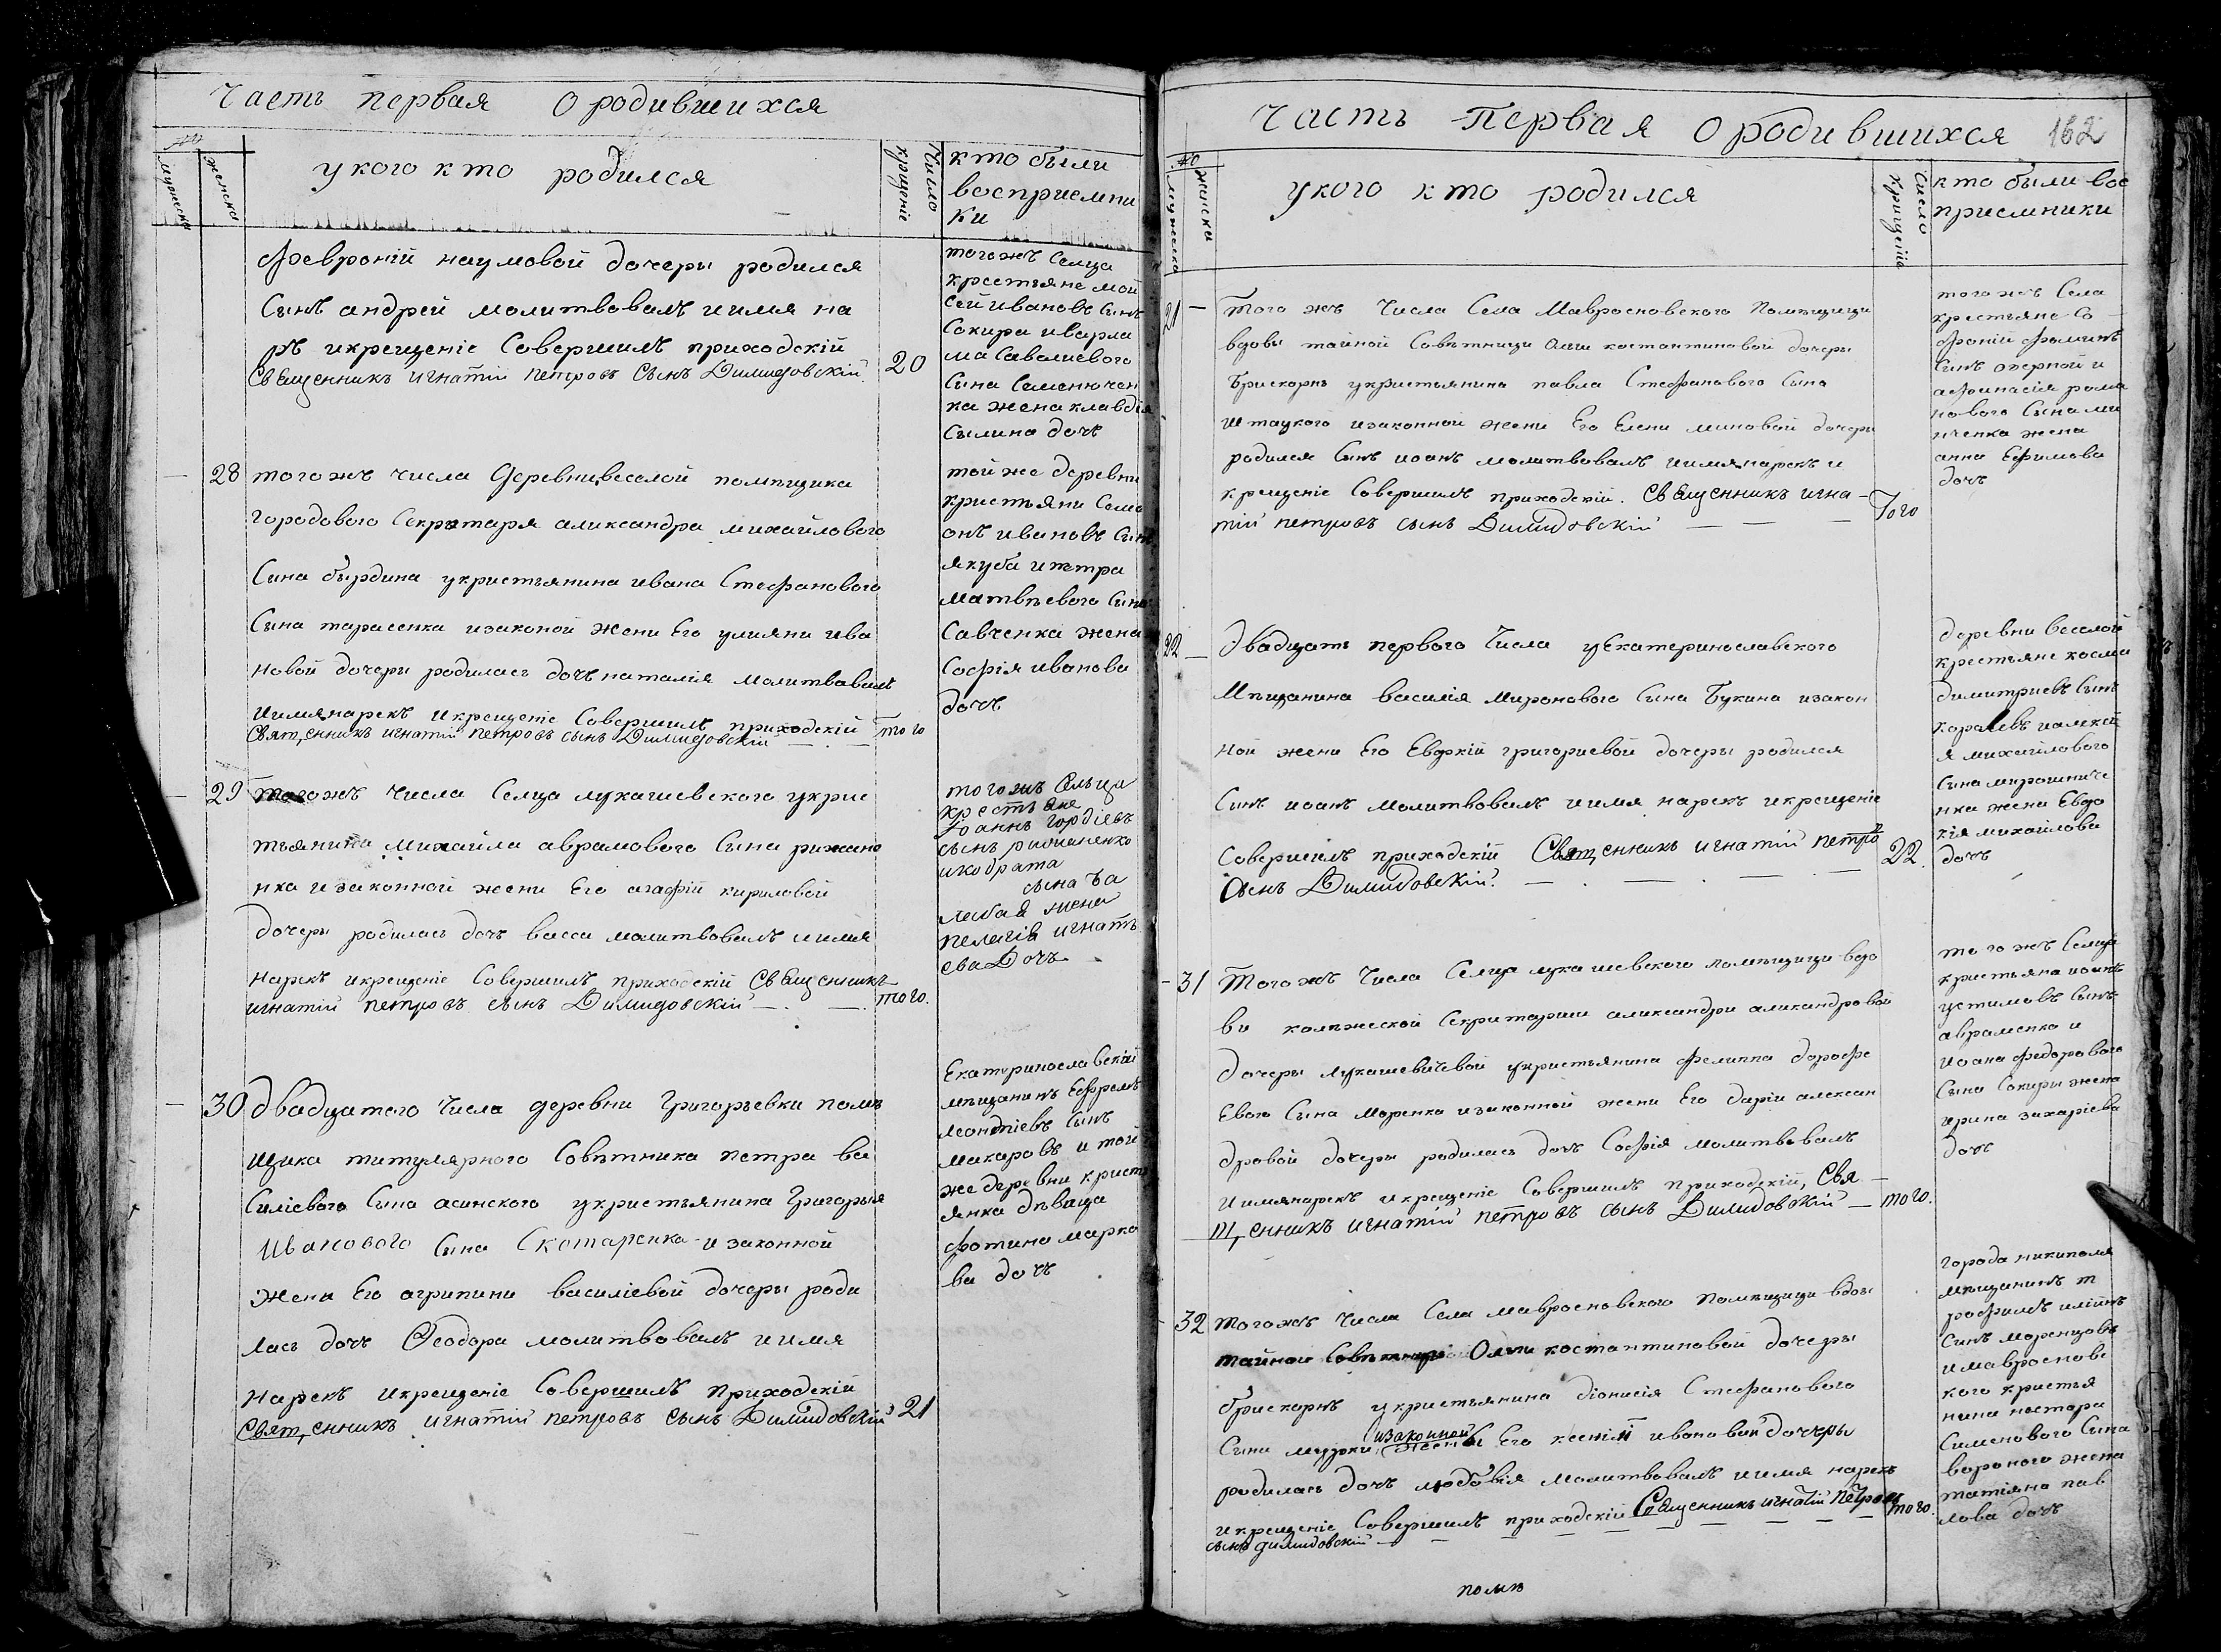 Часть первая О родившихся
№
мужеска
женска
у кого кто родился
число
крщеніе
кто были
восприемни
ки
Февроній наумовой дочеры родился
Сынъ андрей молитвовалъ и имя на
ръ икрещеніе Совершилъ приходскій
Священникъ игнатій петровъ Сынъ Димидовскій
20
тогожъ Селца
крестьяне мой
сей ивановъ Сынъ
Сокира и варла
ма Савелиевого
Сына Семенючен
ка жена клавдія
Сылина дочъ
28 тогожъ числа Деревни веселой помѣщика
городового Секрѣтаря александра михайлового
Сина бырдина укристьянина ивана Стефанового
Сина тарасенка изаконой жени Его улияни ива
новой дочеры родилась дочъ наталія молитвовалъ
иимянарекъ икрещеніе Совершилъ приходскій
Святенникъ игнатій петровъ сынъ Димидовскій
того
той же деревни
кристьяни Семе
онъ ивановъ Синъ
якуба и петра
матвѣевого Сина
Савченка жена
Софія иванова
дочъ
29 тогожъ числа Селца лукашевского укрис
тьянина михайла аврамового Сина рижено
нка изаконной жени Его агафій кириловой
дочеры родилась дочъ васса молитвовалъ иимя
нарекъ икрещеніе Совершилъ приходскій Священникъ
игнатій петровъ сынъ Димидовскій
того.
тогожъ Сельца
крестьяне
Іоаннъ гордіевъ
сынъ
сына
жена
пелагія игнать
ева Дочъ
30 двадцатого Числа деревни Григорьевки помѣ
щика титулярного Совѣтника петра ва
Силіевого Сина асинского укристьянина Григорыя
ивановогo Сина Скотаренка изаконной
жени Его агрипини василіевой дочеры роди
лась дочъ Ѳеодора молитвовалъ иимя
нарекъ икрещеніе Совершилъ приходскій
Святенникъ игнатій петровъ сынъ Димидовскій
21
Екатеринославскій
мѣщанинъ Ефремъ
леонтіевъ Сынъ
макаровъ и той
же деревни кристь
янка дѣваца
фотина марко
ва дочъ
Часть Первая О родившихся
162
№
мужеска
женска
у кого кто родился
Число
Крищеніе
кто были вос
приемники
21 Того жъ Числа Села Мавроеновского Помѣщици
вдовы тайной Совѣтници Олги костантиновой дочеры
Брискорнъ укристьянина павла Стефанового Сина
штацкого изаконной жени Его Елени миновой дочеры
родился Синъ иоанъ молитвовалъ иимянарекъ и
крещеніе Совершилъ приходскій. Священникъ игна-
тій петровъ сынъ Димидовскій
Того
того жъ Села
крестьяне Со
фроній фоминъ
Синъ озерной и
афанасія рома
нового Сына ми
иченка жена
анна Ефимова
дочъ
22 Двадцать первого Числа уЕкатеринославского
Мѣщанина василія миронового Сина Букина изакон
ной жени Его Евдокій григориевой дочеры родился
Синъ иоанъ молитвовалъ иимя нарекъ икрещеніе
Совершилъ приходскій Святенникъ игнатій петро
сынъ Димидовскій.
22.
деревни веселой
крестьяне косма
димитриевъ Сынъ
королевъ иалексі
я михайлового
Сина мирошниче
нка жени Евдо
кія михайлова
дочъ
31 Того жъ Числа Селца лукашевского помѣщици вдо
ви колежской Секритарши александри александровой
дочеры лукашевичевой укристьянина филиппа дорофе
Евого Сина моренка изаконной жени Его дарiи алексан
дровой дочеры родилась дочъ Софія молитвовалъ
иимянарекъ икрещеніе Совершилъ приходскій, Свя-
тенникъ игнатій петровъ сынъ Димидовскій
того.
того жъ Селца
кристьяна иоанъ
устимовъ Сынъ
авраменко и
иоана федорового
Сина Сокиры жена
ирина захаріева
дочъ
32 Тогожъ Числа Села мавроеновского Помѣщици вдови
тайной Совѣтници Олги костантиновой дочеры
брискорнъ укристьянина діонисія Стефанового
Сина музжи изаконной жены Его ксеніи ивановой дочеры
родилась дочъ любовія молитвовалъ иимя нарекъ
икрещеніе Совершилъ приходскій Священникъ игнатій петровъ
сынъ димидовскій
того.
города никиполя
мещанинъ т
рофимъ илінъ
Синъ моренцовъ
имавроеновс
кого кристья
нина нестора
Сименового Сина
вороного жена
татіяна пав
лова дочъ
помѣ